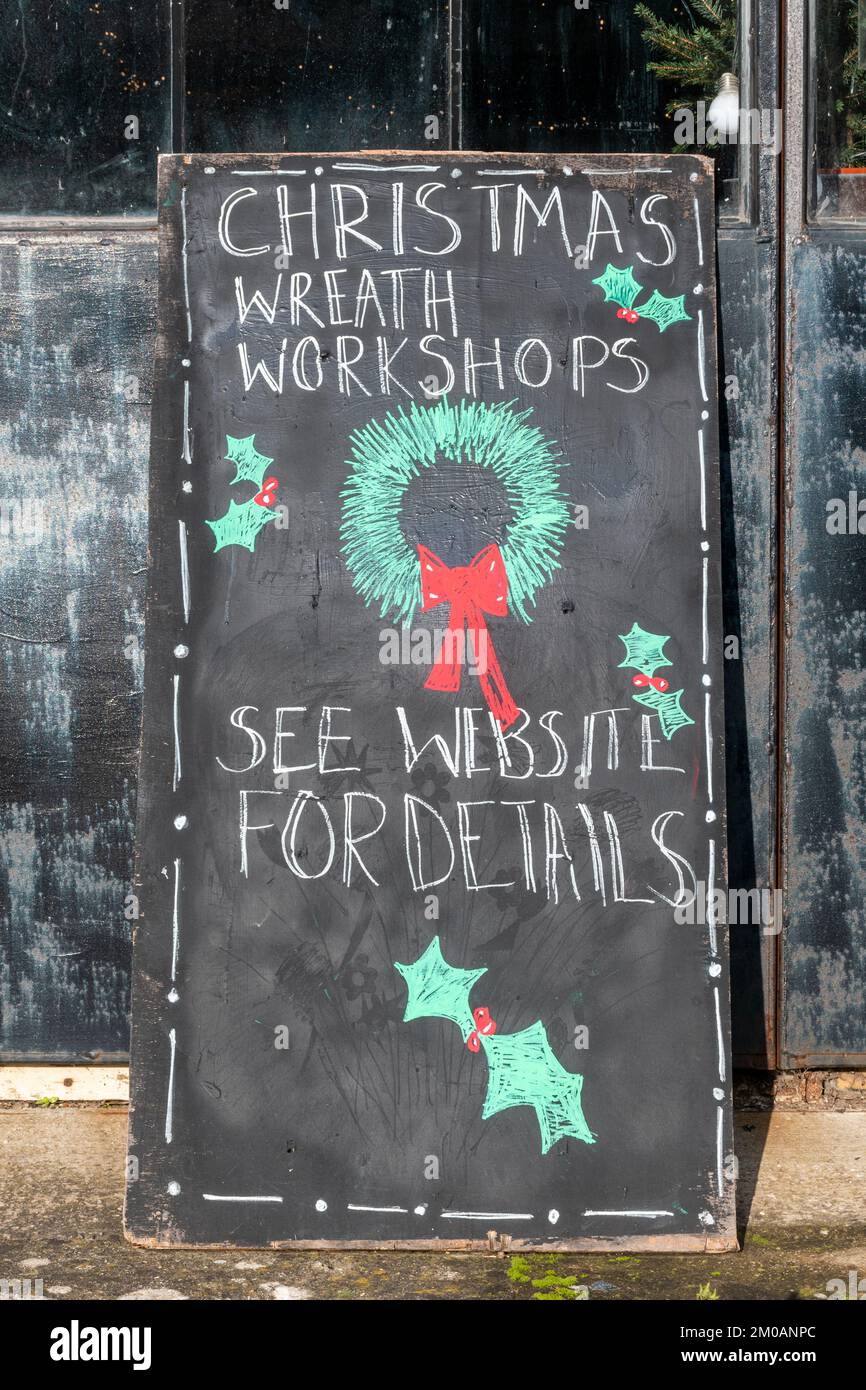 CHRISTMAS
WREATH
WORKSHOPS
SEE WEBSITE
FOR DETAILS
alamy
Image ID: 2M0ANPC
www.alamy.com